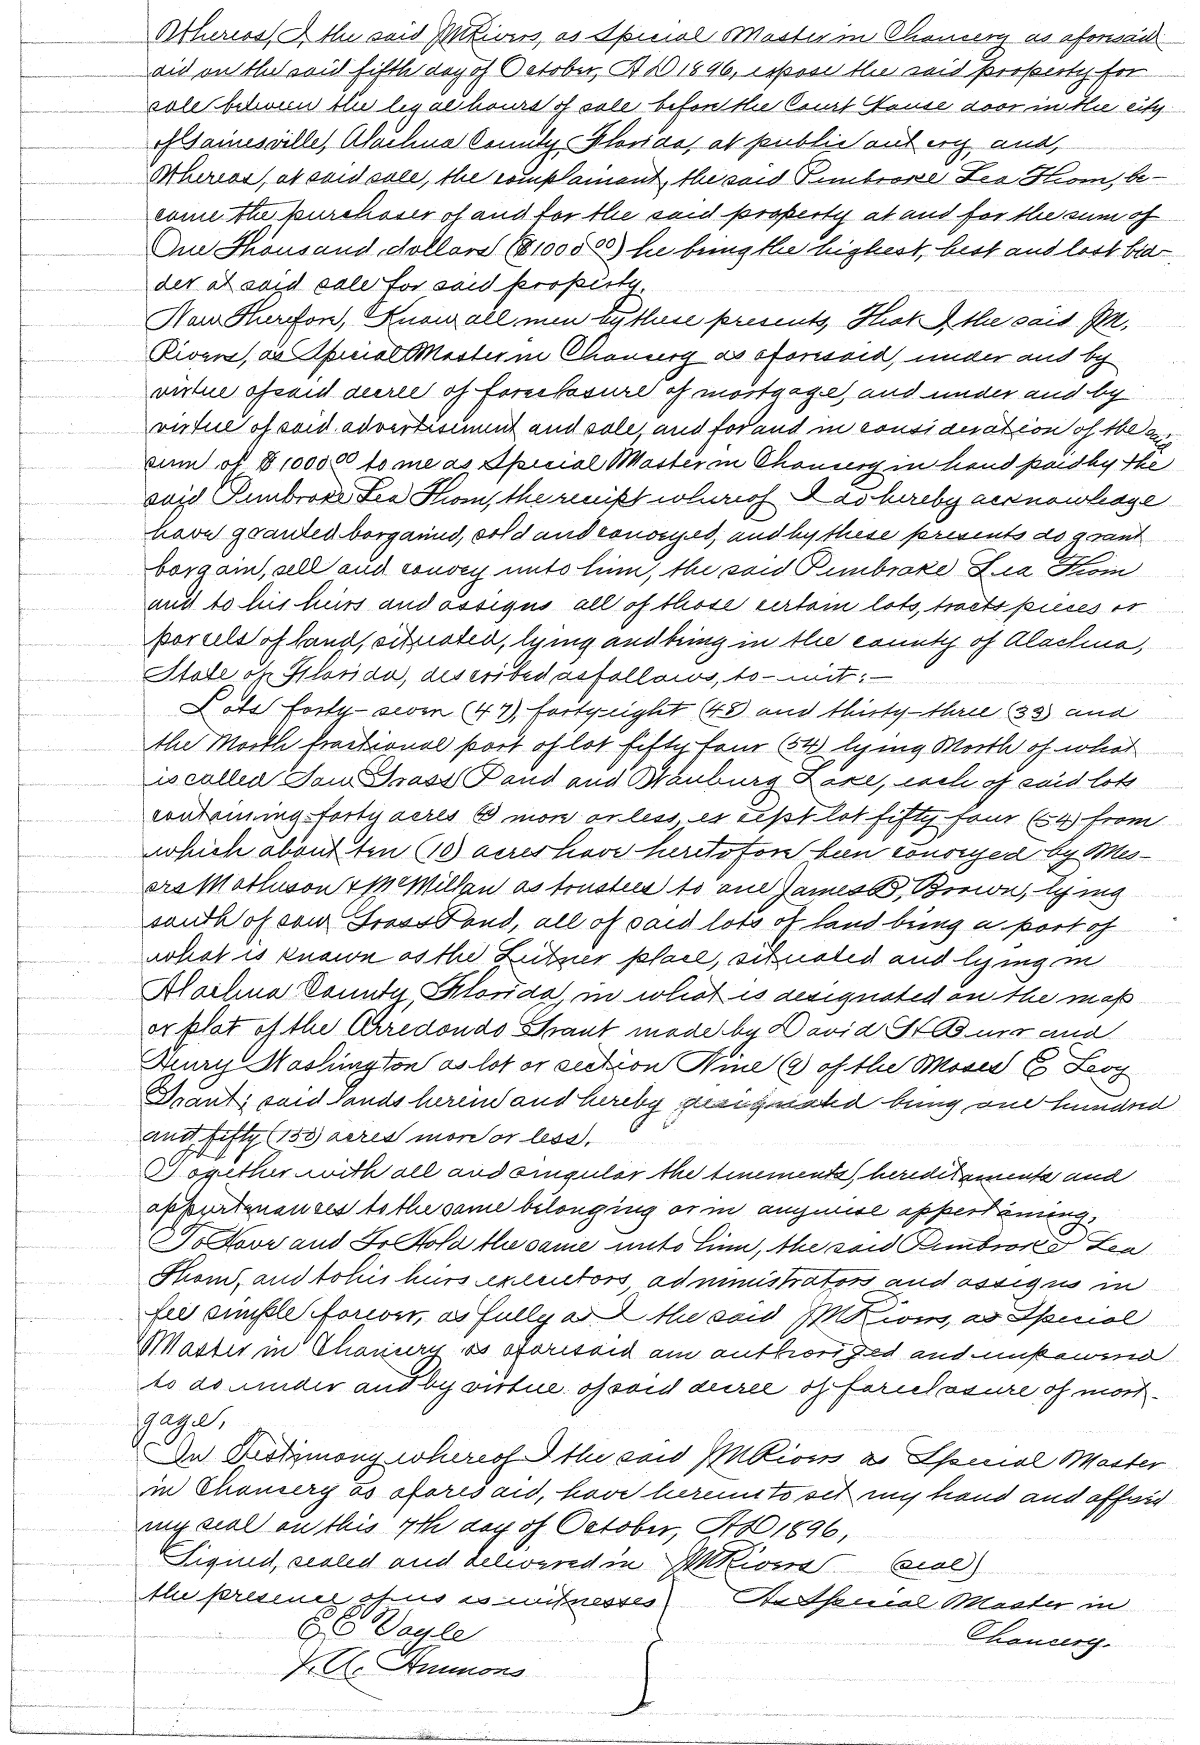 Whereas, I, the said J M Rivers, as Special Master in Chancery as aforesaid
did on the said fifth day of October, A D 1896, expose the said property for
sale between the legal hours of sale before the Court House door in the city
of Gainesville, Alachua County, Florida, at public outcry, and,
Whereas, at said sale, the complainant, the said Pembroke Lea Thom, be-
came the purchaser of and for the said property at and for the sum of
One Thousand dollars ($1000 00) he being the highest, best and last bid-
der at said sale for said property.
Now Therefore, Know all men by these presents, That I, the said J M.
Rivers, as Special Master in Chancery as aforesaid, under and by
virtue of said decree of foreclosure of mortgage, and under and by
virtue of said advertisement and sale, and for and in consideration of the said
sum of $1000 00 to me as Special Master in Chancery in hand paid by the
said Pembroke Lea Thom, the receipt whereof I do hereby acknowledge
have granted bargained, sold and conveyed, and by these presents do grant
bargain, sell and convey unto him, the said Pembroke Lea Thom
and to his heirs and assigns all of those certain lots, tracts pieces or
parcels of land, situated, lying and being in the county of Alachua,
State of Florida, described as follows, to-wit:-
Lots forty-seven (47), forty-eight (48) and thirty-three (33) and
the North fractional part of lot fifty four (54) lying North of what
is called Saw Grass Pond and Wauburg Lake, each of said lots
containing forty acres (40) more or less, except lot fifty four (54) from
which about ten (10) acres have heretofore been conveyed by Mes-
srs Matheson & McMillan as trustees to one James B, Brown, lying
south of saw Grass Pond, all of said lots of land being a part of
what is known as the Leitner place, situated and lying in
Alachua County, Florida, in what is designated on the map
or plat of the Arredondo Grant made by David H Burr and
Henry Washington as lot or section Nine (9) of the Moses E Levy
Grant; said lands herein and hereby designated being one hundred
and fifty (150) acres more or less.
Together with all and singular the tenements, hereditaments and
appurtenances to the same belonging or in anywise appertaining,
To Have and To Hold the same unto him, the said Pembroke Lea
Thom, and to his heirs executors, administrators and assigns in
fee simple forever, as fully as I the said J M Rivers, as Special
Master in Chancery as aforesaid am authorized and empowered
to do under and by virtue of said decree of foreclosure of mort-
gage,
In Testimony whereof I the said J M Rivers as Special Master
in Chancery as aforesaid, have hereunto set my hand and affixed
my seal on this 7th day of October, A D 1896,
Signed, sealed and delivered in J M Rivers (seal)
the presence of us as witnesses As Special Master in
E E Vayle Chancery.
J. A. Ammons